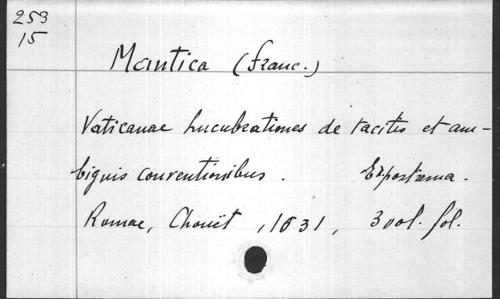 253
15
Mantica (Franc.)
Vaticanae lucubrationes de tacitis et am-
biguis conventionibus. Ed. postrema.
Romae, Chouët, 1631, 3 vol. fol.